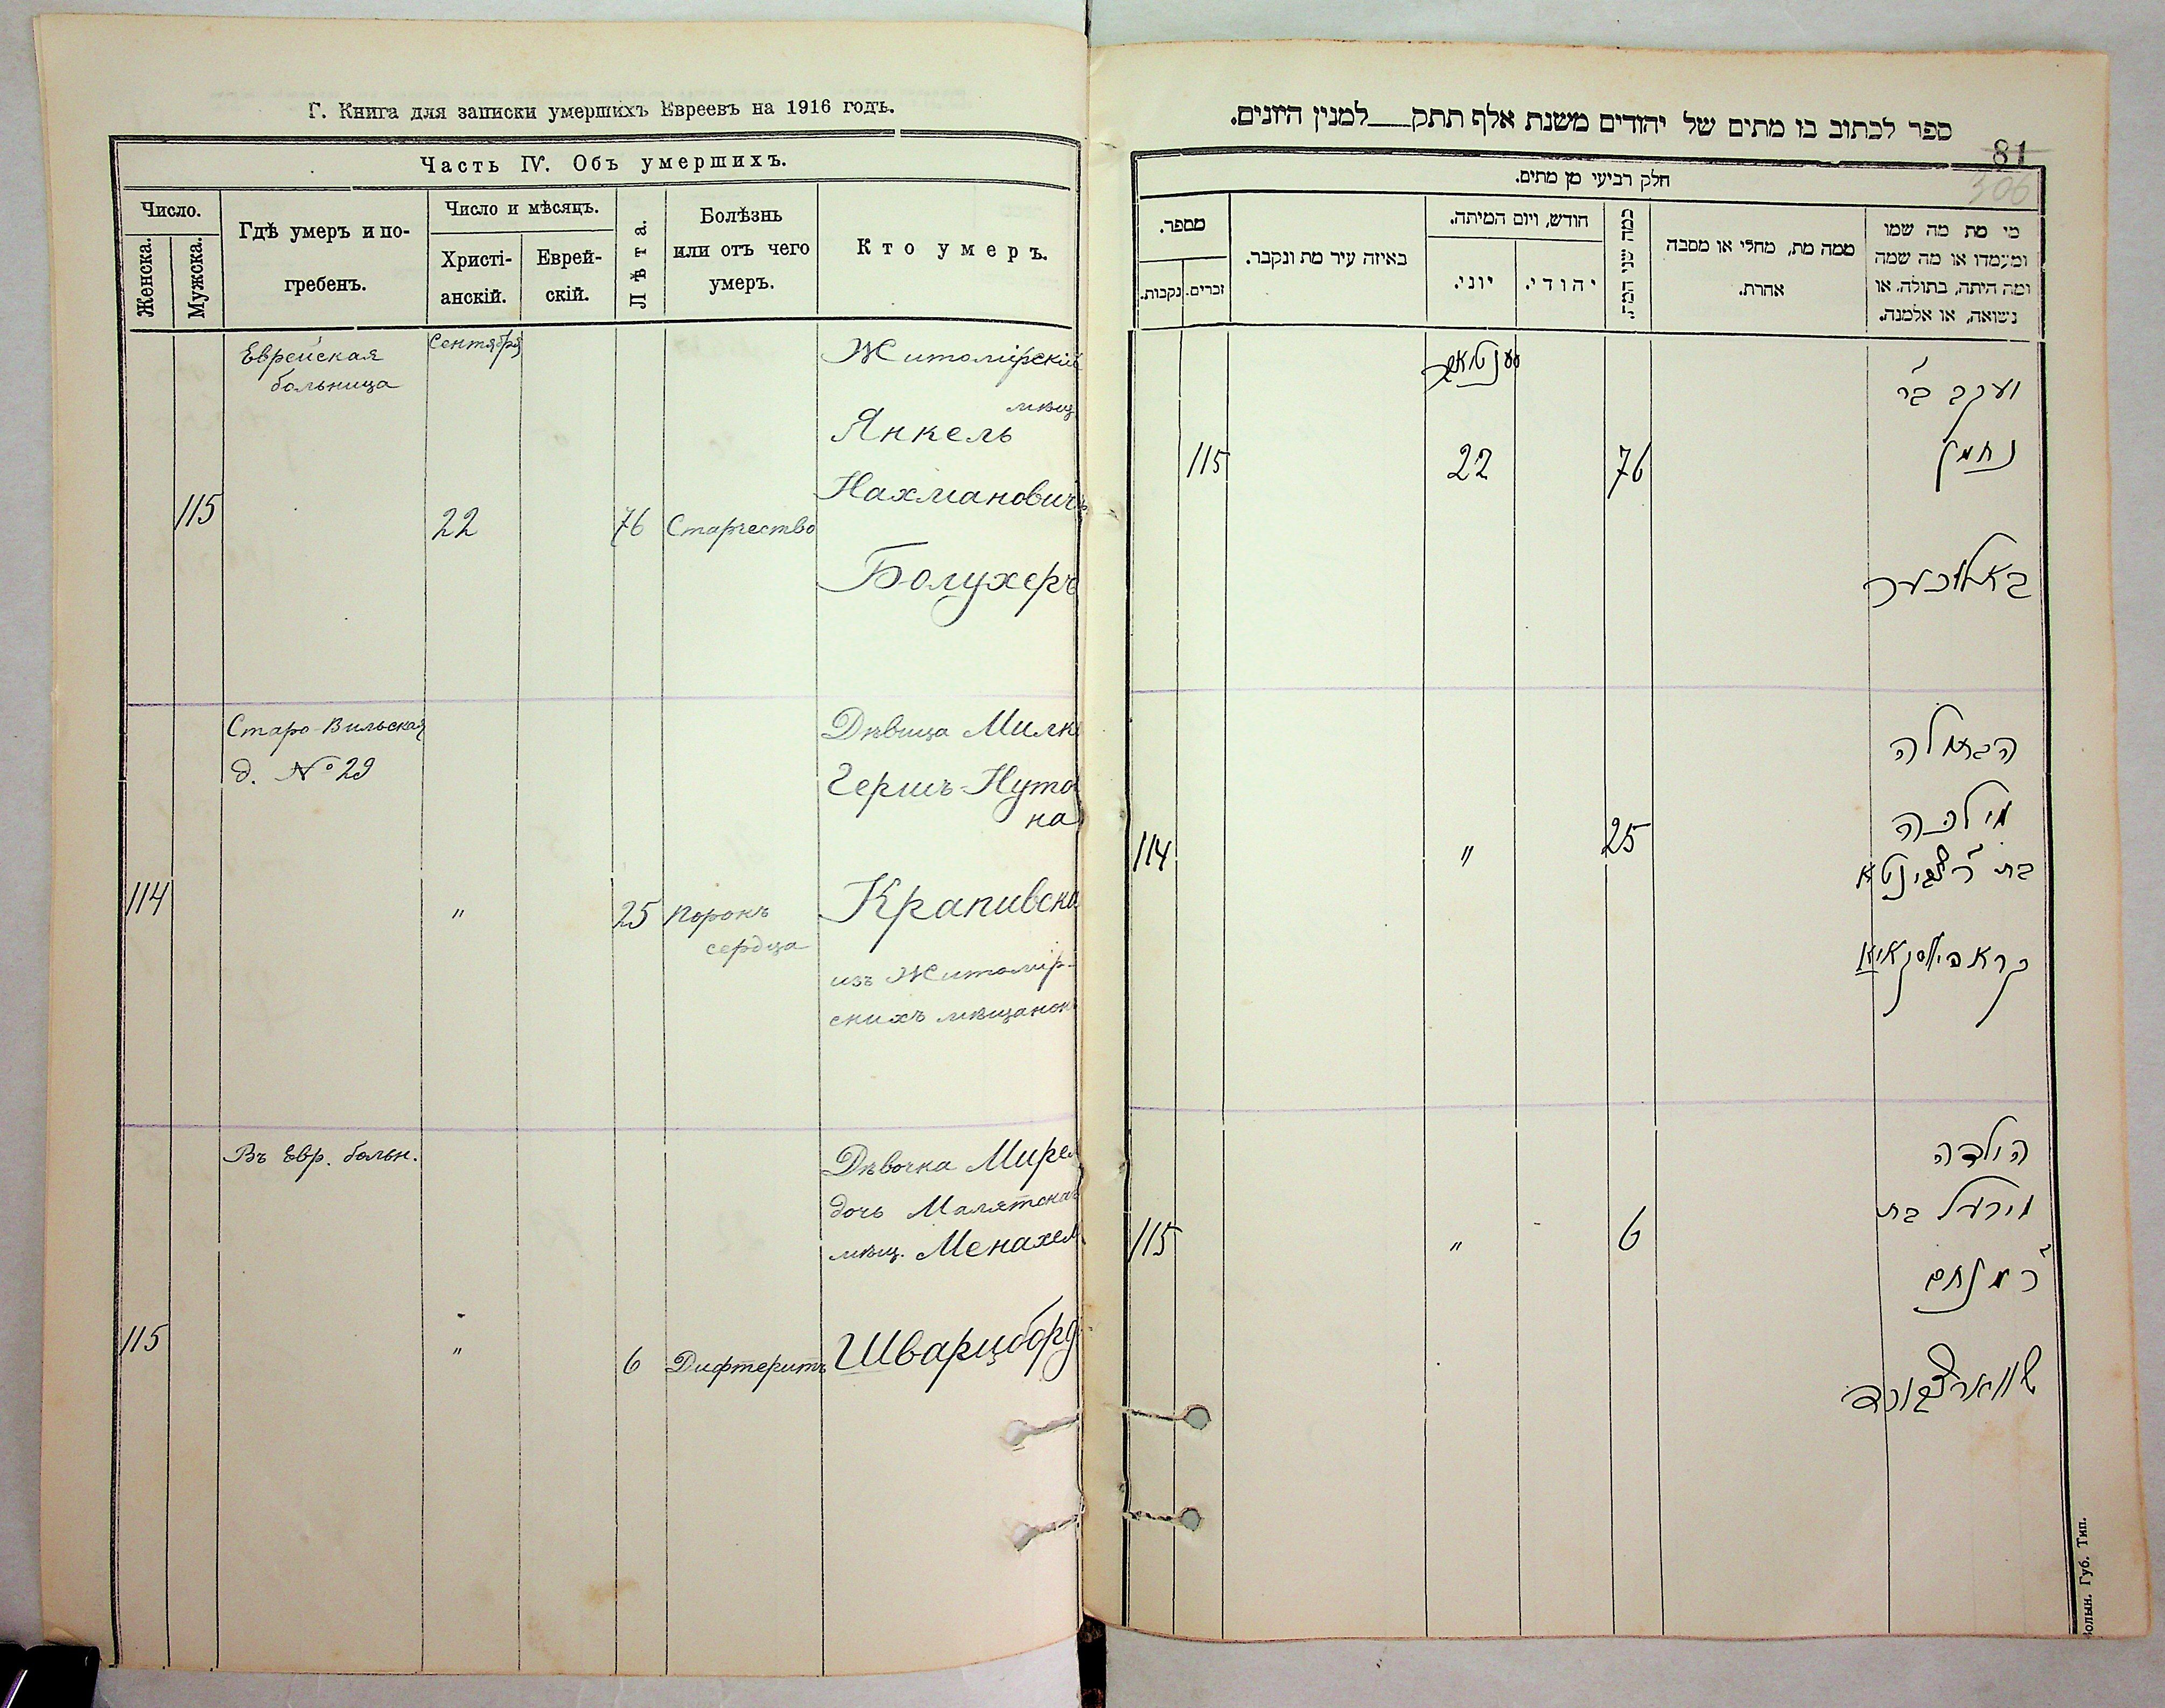 Г. Книга для записки умершихъ Евреевъ на 1916 годъ.
Часть IV. Объ умершихъ.
Число.
Женска.
Мужска.
Гдѣ умеръ и по-
гребенъ.
Число и мѣсяцъ.
Христі-
анскій.
Еврей-
скій.
Лѣта.
Болѣзнь
или отъ чего
умеръ.
Кто умеръ.
Еврейская
больница
Сентября
Житомірскій
мѣщ.
Янкель
Нахмановичъ
115
22
76
Старчество
Болухеръ
Старо-Вильская
д. № 29
Дѣвица Милк
Гершъ-Нуто
на
114
"
25
Порокъ
сердца
Крапивска
изъ Житомір-
скихъ мѣщанок
Въ Евр. больн.
Дѣвочка Мирел
дочь Малятска
мѣщ. Менахем
115
"
6
Дифтеритъ
Шварцборд
ספר לכתוב בו מתים של יהודים משנת אלף תתק___למנין היונים.
81
306
חלק רביעי מן מתים.
מספר.
זכרים.
נקבות.
באיזה עיר מת ונקבר.
חודש, ויום המיתה.
יוני.
יהודי.
כמה שני המת.
ממה מת, מחלי או מסבה
אחרת.
מי מת מה שמו
ומעמדו או מה שמה
ומה היתה, בתולה, או
נשואה, או אלמנה.
יעקב בר
נחמן
115
22
76
באלוכער
הבתולה
מילכה
114
"
25
קראפיווסקאיא
הילדה
מירעל בת
115
"
6
ר מנחם
שווארצבורד
Волын. Губ. Тип.